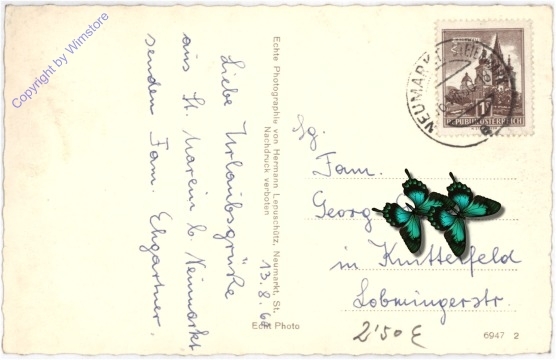 Copyright by Wimstore
Liebe Urlaubsgrüße
aus St. Marein b. Neumarkt
senden Fam. Ehgartner.
13.8.60
Echte Photographie von Hermann Lepuschütz, Neumarkt, St.
Nachdruck verboten
Echt Photo
NEUMARKT
REPUBLIK ÖSTERREICH
1S
Fam.
Georg
in Knittelfeld
Lobmingerstr.
2'50 €
6947 2